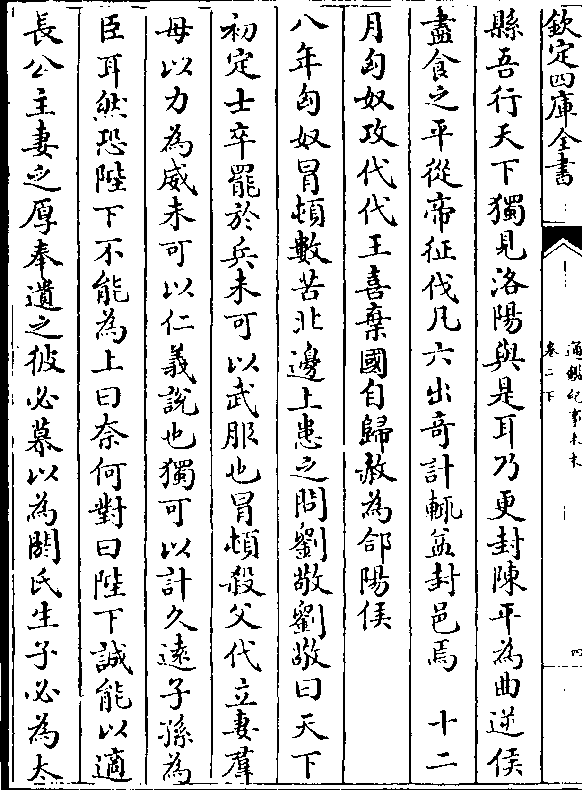 欽定四庫全書
通鑑紀事本末
卷二下
四
縣吾行天下獨見洛陽與是耳乃更封陳平為曲逆侯
盡食之平從帝征伐凡六出奇計輒益封邑焉　十二
月匈奴攻代代王喜棄國自歸赦為郃陽侯
八年匈奴冒頓數苦北邊上患之問劉敬劉敬曰天下
初定士卒罷於兵未可以武服也冒頓殺父代立妻羣
母以力為威未可以仁義說也獨可以計久遠子孫為
臣耳然恐陛下不能為上曰奈何對曰陛下誠能以適
長公主妻之厚奉遺之彼必慕以為閼氏生子必為太